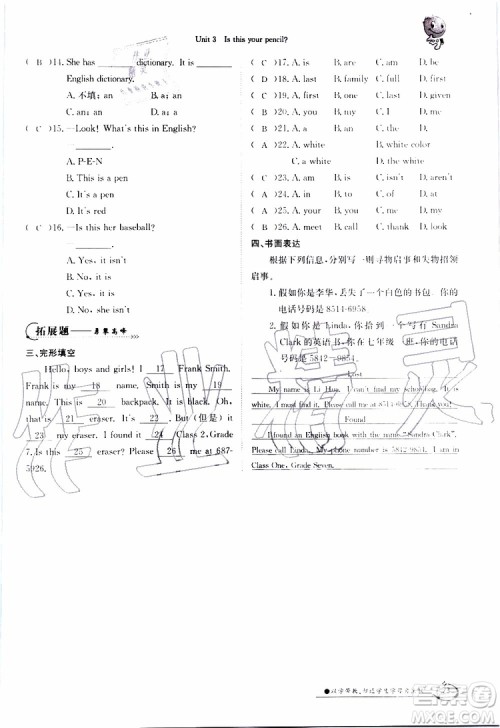 Unit 3 Is this your pencil?
( B )14. She has ______ dictionary. It is
______ English dictionary.
A. 不填; an B. a; an
C. an; an D. a; a
( C )15. —Look! What's this in English?
—______.
A. P-E-N
B. This is a pen
C. It's a pen
D. It's red
( C )16. —Is this her baseball?
—______.
A. Yes, it isn't
B. Yes, it is
C. No, it isn't
D. No, she isn't
拓展题
三、完形填空
Hello, boys and girls! I 17 Frank Smith.
Frank is my 18 name, Smith is my
19 name. This is 20 backpack. It is
That's 21 eraser. It's 22 . But (但是) it
23 my eraser. I found it 24 Class 2, Grade
7. Is this 25 eraser? Please 26 me at 687-
5926.
( C )17. A. is B. are C. am D. be
( A )18. A. last B. family C. first D. full
( C )19. A. first B. given C. last D. given
( B )20. A. a B. my C. I D. you
( B )21. A. a B. an C. / D. the
( A )22. A. white B. white color
C. a white D. the white
( C )23. A. is B. am C. isn't D. aren't
( A )24. A. in B. on C. for D. at
( C )25. A. you B. my C. your D. her
( B )26. A. meet B. call C. thank D. ask
四、书面表达
根据下列信息，分别写一则寻物启事和失物招领
启事。
1. 假如你是李华，丢失了一个白色的书包，你的
电话号码是 8514-6958。
2. 假如你是 Linda，你拾到一本写有 Sandra
Clark 的英语书，你在七年级一班，你的电
话号码是 5842-9854。
Lost
My name is Li Hua. I have lost my schoolbag. It is
white. I must find it. Please call me at 8514-6958.
Found
I found an English book with the name "Sandra Clark".
Please call Linda. My phone number is 5842-9854. I am in
Class One, Grade Seven.